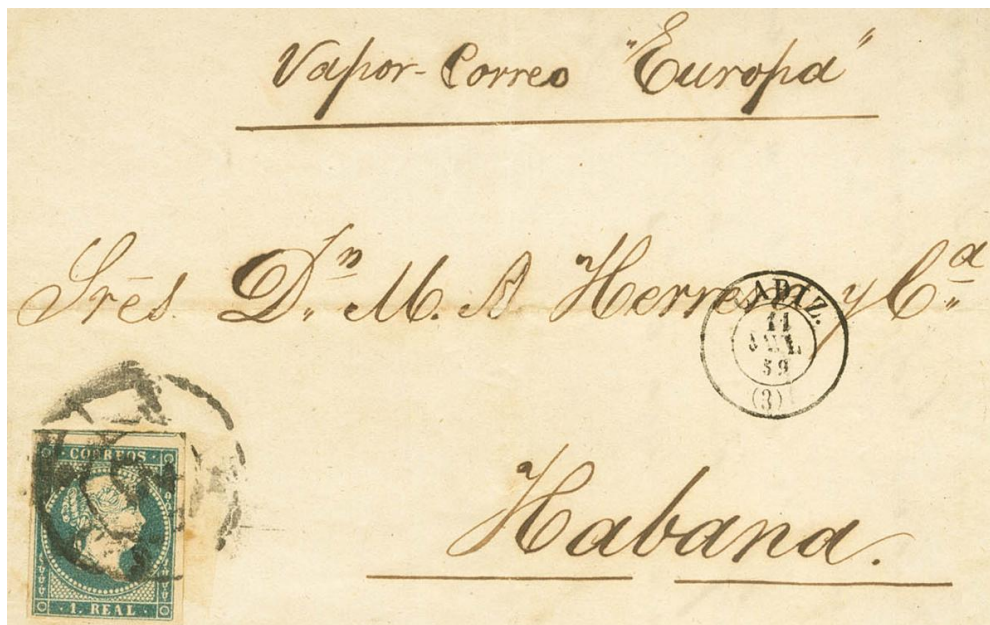 Vapor-Correo "Europa"
Sres. Dn. M. A. Herrera y Ca.
CADIZ.
11
JUL
59
(3)
Habana.
CORREOS
1. REAL